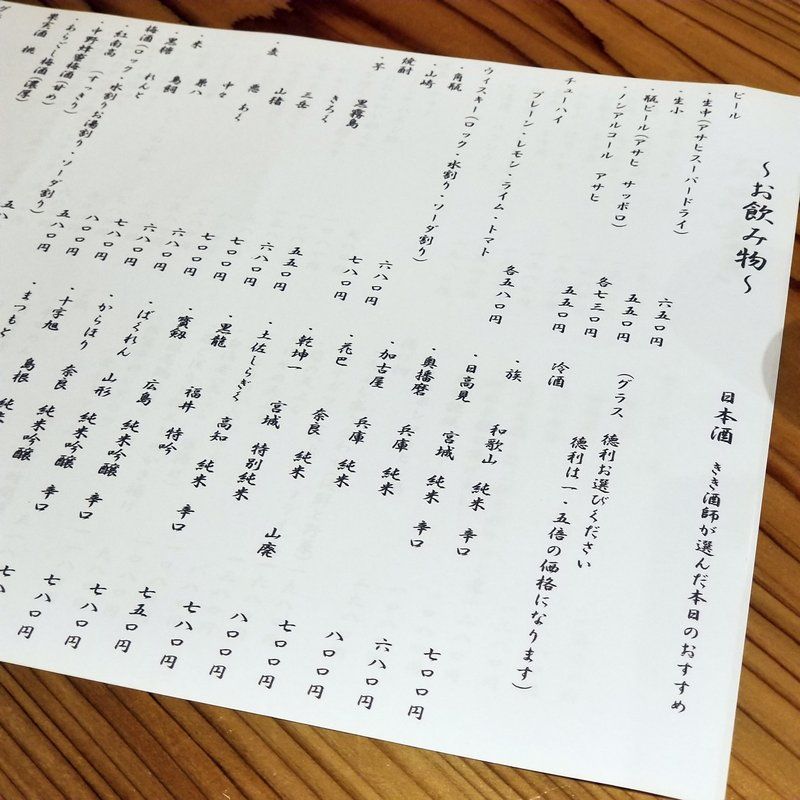 ～お飲み物～
ビール
・生中(アサヒスーパードライ) 六五〇円
・生小 五五〇円
・瓶ビール(アサヒ サッポロ) 各七三〇円
・ノンアルコール アサヒ 五五〇円
チューハイ
プレーン・レモン・ライム・トマト 各五八〇円
ウイスキー(ロック・水割り・ソーダ割り)
・角瓶 六八〇円
・山崎 七八〇円
焼酎
・芋
黒霧島 五五〇円
きろく 六八〇円
三岳 七〇〇円
・麦 山猪 七〇〇円
中々 六八〇円
・米 兼八 七八〇円
・黒糖 鳥飼
れんと
梅酒(ロック・水割りお湯割り・ソーダ割り)
・紅南高(すっきり)
・中野蜂蜜梅酒(甘め)
・あらごし梅酒(濃厚)
果実酒 桃
日本酒 きき酒師が選んだ本日のおすすめ
(グラス 徳利お選びください
徳利は一・五倍の価格になります)
冷酒
・族 和歌山 純米 辛口 七〇〇円
・日高見 宮城 純米 辛口 六八〇円
・奥播磨 兵庫 純米 八〇〇円
・加古屋 兵庫 純米 七〇〇円
・花巴 奈良 純米 山廃 八〇〇円
・乾坤一 宮城 特別純米 七八〇円
・土佐しらぎく 高知 純米 七五〇円
・黒龍 福井 特吟 辛口 七八〇円
・寳剱 広島 純米吟醸 辛口 七八〇円
・ばくれん 山形 純米吟醸 辛口
・からはり 奈良 純米吟醸
・十字旭 島根 純米
・まつもと